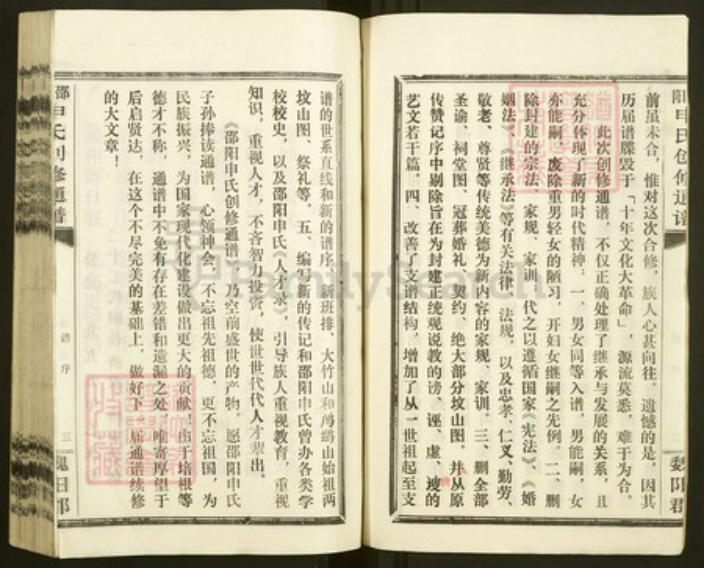 前虽未合，惟对这次合修，族人心甚向往。遗憾的是，因其
历届谱牒毁于「十年文化大革命」，源流莫悉，难于为合。
此次创修通谱，不仅正确处理了继承与发展的关系，且
充分体现了新的时代精神：一、男女同等入谱，男能嗣，女
亦能嗣，废除重男轻女的陋习，开妇女继嗣之先例。二、删
除封建的宗法、家规、家训，代之以遵循国家《宪法》、《婚
姻法》、《继承法》等有关法律、法规，以及忠孝、仁义、勤劳、
敬老、尊贤等传统美德为新内容的家规、家训。三、删全部
圣谕、祠堂图、冠葬婚礼、契约、绝大部分坟山图。并从原
传赞记序中剔除旨在为封建正统观说教的谤、诬、虚、谀的
艺文若干篇。四、改善了支谱结构，增加了从一世祖起至支
谱的世系直线和新的谱序、新班排、大竹山和鸬鹚山始祖两
坟山图、祭礼等。五、编写新的传记和邵阳申氏曾办各类学
校校史，以及邵阳申氏《人才录》，引导族人重视教育，重视
知识，重视人才，不吝智力投资，使世世代代人才辈出。
《邵阳申氏创修通谱》乃空前盛世的产物。愿邵阳申氏
子孙捧读通谱，心领神会，不忘祖先祖德，更不忘祖国，为
民族振兴，为国家现代化建设做出更大的贡献！由于培根等
德才不称，通谱中不免有存在差错和遗漏之处，唯寄厚望于
后启贤达，在这个不尽完美的基础上，做好下届通谱续修
的大文章！
谱序
三
FamilySearch